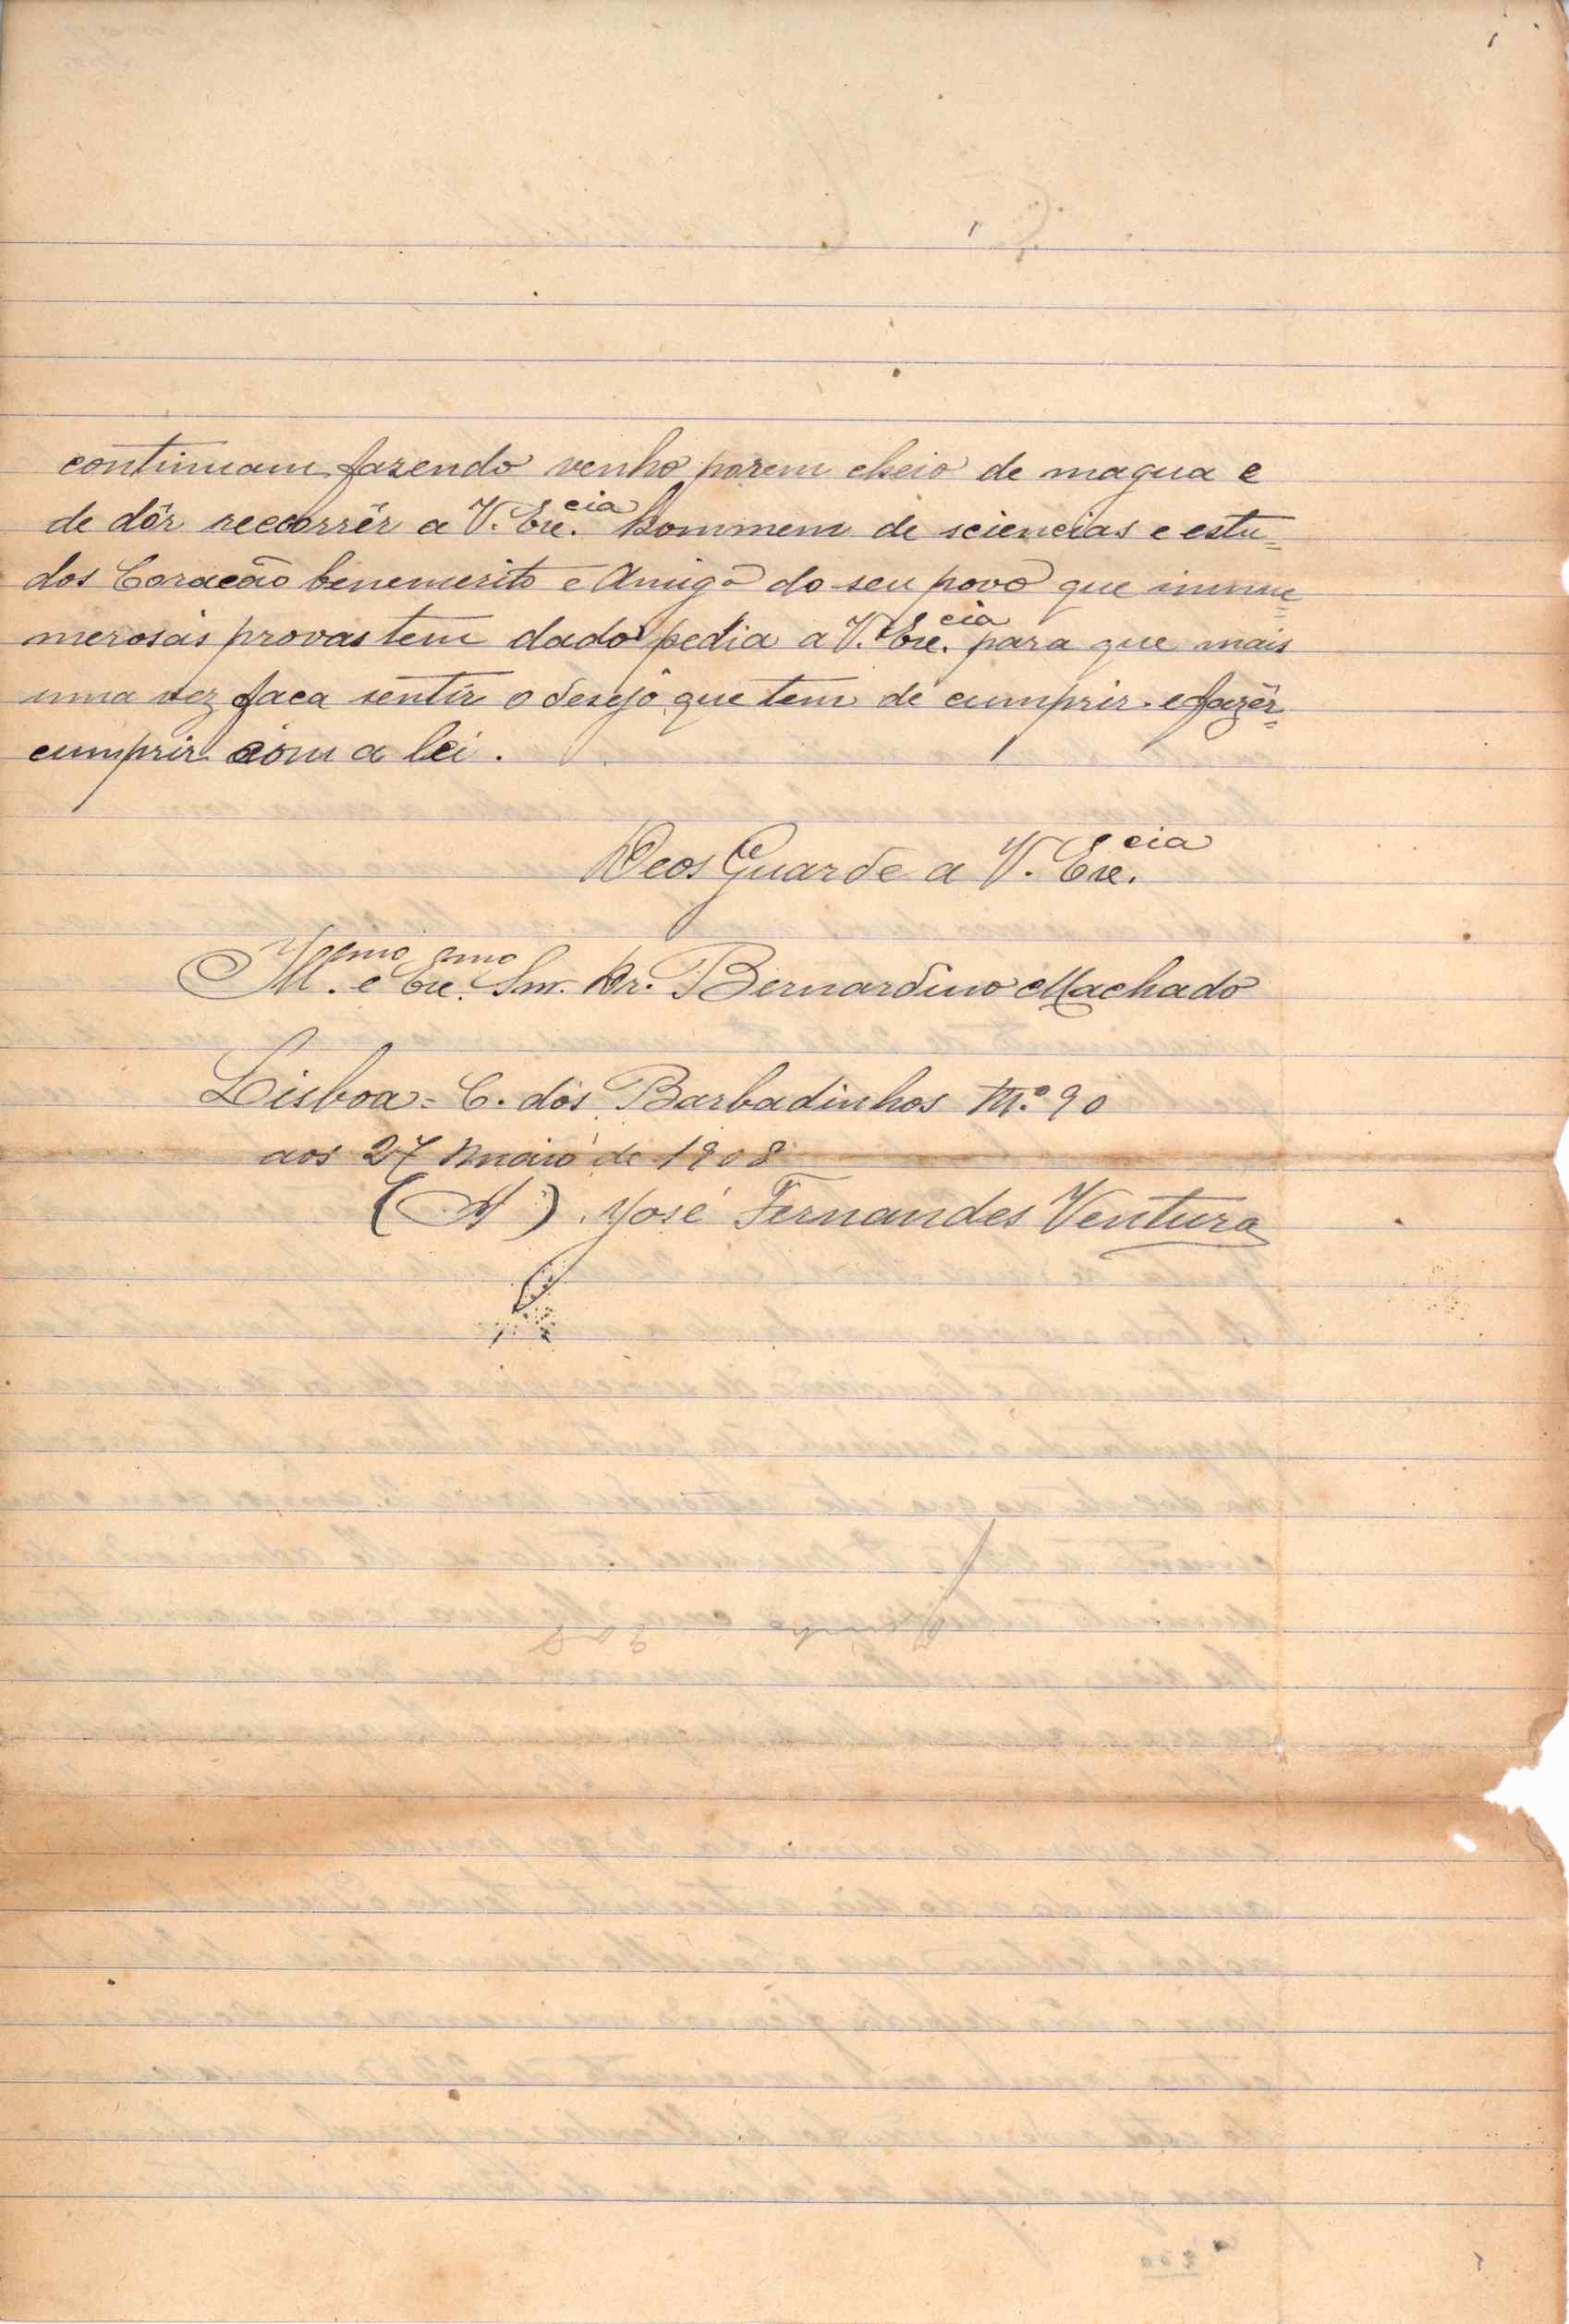 continuam fazendo venho porem cheio de magua e
de dôr reccorrêr a V. Exc.cia hommem de sciencias e estu=
dos Coracão benemerito e Amigo do seu povo que innu=
merosas provas tem dado pedia a V. Exc.cia para que mais
uma vez faca sentir o desejo que tem de cumprir e fazêr=
cumprir com a lei.
Deos Guarde a V. Exc.cia
Ill.emo e Exc.emo Snr. Dr. Bernardino Machado
Lisboa= C. dos Barbadinhos N.º 90
aos 27 maio de 1908
(A) José Fernandes Ventura